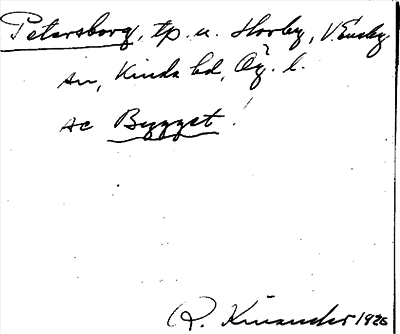 Petersborg, tp. u. Horby, V. Eneby
sn, Kinda hd, Ög. l.
se Bygget!
R. Kinander 1926